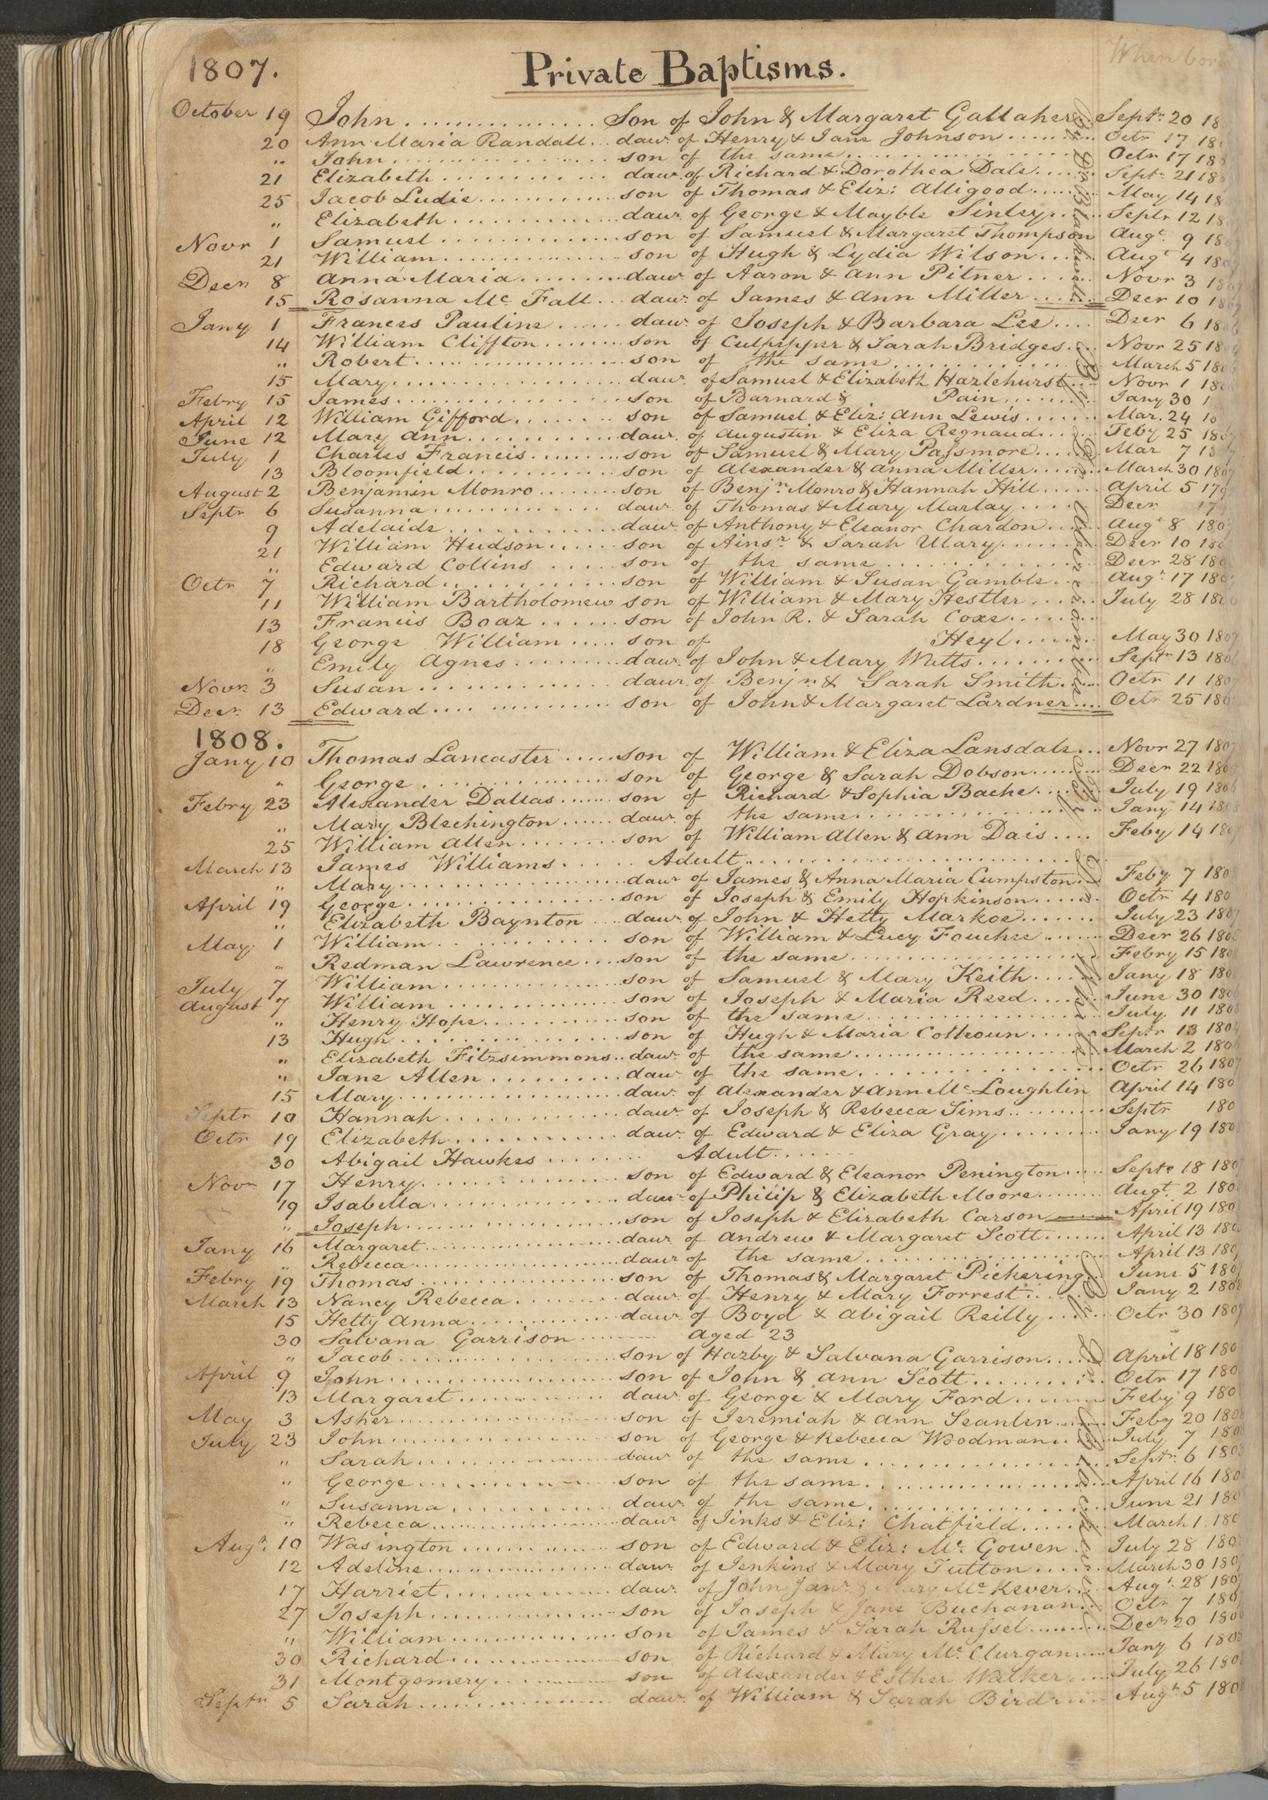 1807. Private Baptisms. When born
October 19 John Son of John & Margaret Gallaher Septr 20 18
20 Ann Maria Randall daur of Henry & Jane Johnson Octr 17 18
" John son of the same Octr 17 18
21 Elizabeth daur of Richard & Dorothea Dale Septr 21 18
25 Jacob Ludie son of Thomas & Eliz: Alligood May 14 18
" Elizabeth daur of George & Mayble Sinley Septr 12 18
Novr 1 Samuel son of Samuel & Margaret Thompson Augt 9 18
21 William son of Hugh & Lydia Wilson Augt 4 180
Decr 8 Anna Maria daur of Aaron & Ann Pitner Novr 3 18
15 Rosanna Mc Fall daur of James & Ann Miller Decr 10 18
By Dr Blackwell
Jany 1 Frances Pauline daur of Joseph & Barbara Lee Decr 6 180
14 William Cliffton son of Culpepper & Sarah Bridges Novr 25 18
" Robert son of the same March 5 18
15 Mary daur of Samuel & Elizabeth Hazlehurst Novr 1 18
Febry 15 James son of Barnard & Pain Jany 30 1
April 12 William Gifford son of Samuel & Eliz: Ann Lewis Mar. 24 18
June 12 Mary Ann daur of Augustin & Eliza Regnaud Feby 25 180
July 1 Charles Francis son of Samuel & Mary Passmore Mar 7 18
13 Bloomfield son of Alexander & Anna Miller March 30 180
August 2 Benjamin Monro son of Benjn Monro & Hannah Hill April 5 179
Septr 6 Susanna daur of Thomas & Mary Marlay Decr 17
9 Adelaide daur of Anthony & Eleanor Chardon Augt 8 180
21 William Hudson son of Ainsr & Sarah Ulary Decr 10 18
" Edward Collins son of the same Decr 28 18
Octr 7 Richard son of William & Susan Gamble Augt 17 180
11 William Bartholomew son of William & Mary Hestler July 28 180
13 Francis Boaz son of John R. & Sarah Coxe
18 George William son of Heyl May 30 180
" Emily Agnes daur of John & Mary Watts Septr 13 180
Novr 3 Susan daur of Benjn & Sarah Smith Octr 11 180
Decr 13 Edward son of John & Margaret Lardner Octr 25 180
By Dr Abercrombie
1808.
Jany 10 Thomas Lancaster son of William & Eliza Lansdale Novr 27 180
" George son of George & Sarah Dobson Decr 22 180
Febry 23 Alexander Dallas son of Richard & Sophia Bache July 19 180
" Mary Blechington daur of the same Jany 14 180
25 William Allen son of William Allen & Ann Dais Feby 14 180
March 13 James Williams Adult
" Mary daur of James & Anna Maria Cumpston Feby 7 180
April 19 George son of Joseph & Emily Hopkinson Octr 4 180
" Elizabeth Baynton daur of John & Hetty Markoe July 23 180
May 1 William son of William & Lucy Fouchee Decr 26 180
" Redman Lawrence son of the same Febry 15 180
July 7 William son of Samuel & Mary Keith Jany 18 180
August 7 William son of Joseph & Maria Reed June 30 180
" Henry Hope son of the same July 11 180
13 Hugh son of Hugh & Maria Colhoun Septr 13 180
" Elizabeth Fitzsimmons daur of the same March 2 180
" Jane Allen daur of the same Octr 26 180
15 Mary daur of Alexander & Ann Mc Loughlin April 14 180
Septr 10 Hannah daur of Joseph & Rebecca Sims Septr 180
Octr 19 Elizabeth daur of Edward & Eliza Gray Jany 19 180
30 Abigail Hawkes Adult
Novr 17 Henry son of Edward & Eleanor Penington Septr 18 180
19 Isabella daur of Philip & Elizabeth Moore Augt 2 180
" Joseph son of Joseph & Elizabeth Carson April 19 180
By White
Jany 16 Margaret daur of Andrew & Margaret Scott April 13 180
" Rebecca daur of the same April 13 180
Febry 19 Thomas son of Thomas & Margaret Pickering June 5 180
March 13 Nancy Rebecca daur of Henry & Mary Forrest Jany 2 180
15 Hetty Anna daur of Boyd & Abigail Reilly Octr 30 180
30 Salvana Garrison aged 23
" Jacob son of Hazby & Salvana Garrison April 18 180
April 9 John son of John & Ann Scott Octr 17 180
13 Margaret daur of George & Mary Ford Feby 9 180
May 3 Asher son of Jeremiah & Ann Scanlen Feby 20 180
July 23 John son of George & Rebecca Woodman July 7 180
" Sarah daur of the same Septr 6 180
" George son of the same April 16 180
" Susanna daur of the same June 21 180
" Rebecca daur of Jinks & Eliz: Chatfield March 1 180
Augt 10 Wasington son of Edward & Eliz: Mc Gowen July 28 180
12 Adeline daur of Jenkins & Mary Tutton March 30 180
17 Harriet daur of John Janr & Mary Mc Kever Augt 28 180
27 Joseph son of Joseph & Jane Buchanan Octr 7 180
" William son of James & Sarah Russel Decr 20 180
30 Richard son of Richard & Mary Mc Clurgan Jany 6 180
31 Montgomery son of Alexander & Esther Walker July 26 180
Septr 5 Sarah daur of William & Sarah Bird Augt 5 180
By Dr Blackwell